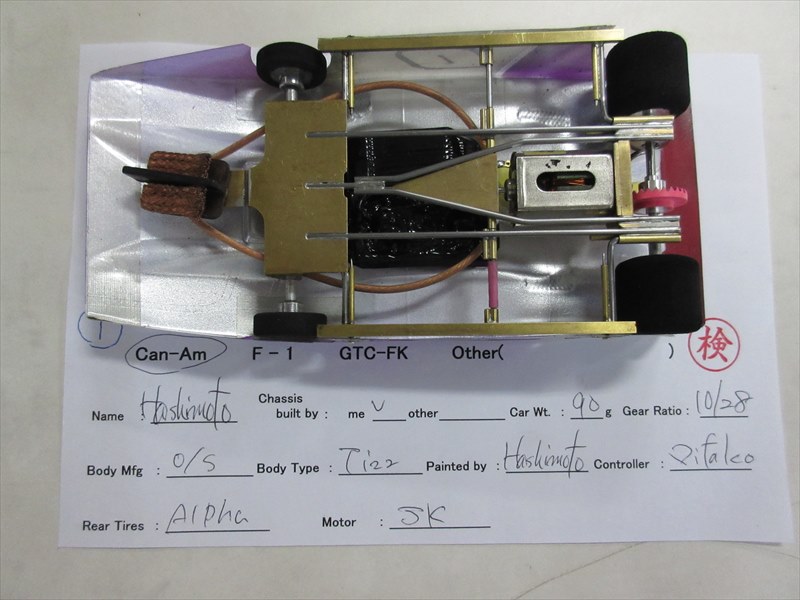 1
Can-Am F-1 GTC-FK Other( ) 検
Name : Hashimoto Chassis built by : me ✓ other Car Wt. : 90 g Gear Ratio : 10/28
Body Mfg : O/S Body Type : Tizz Painted by : Hashimoto Controller :
Rear Tires : Alpha Motor : JK